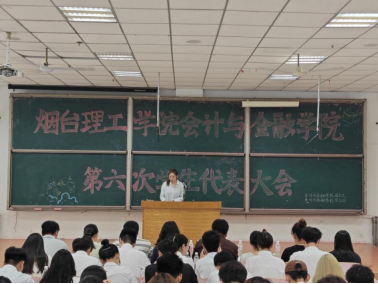 烟台理工学院会计与金融学院
第六次学生代表大会